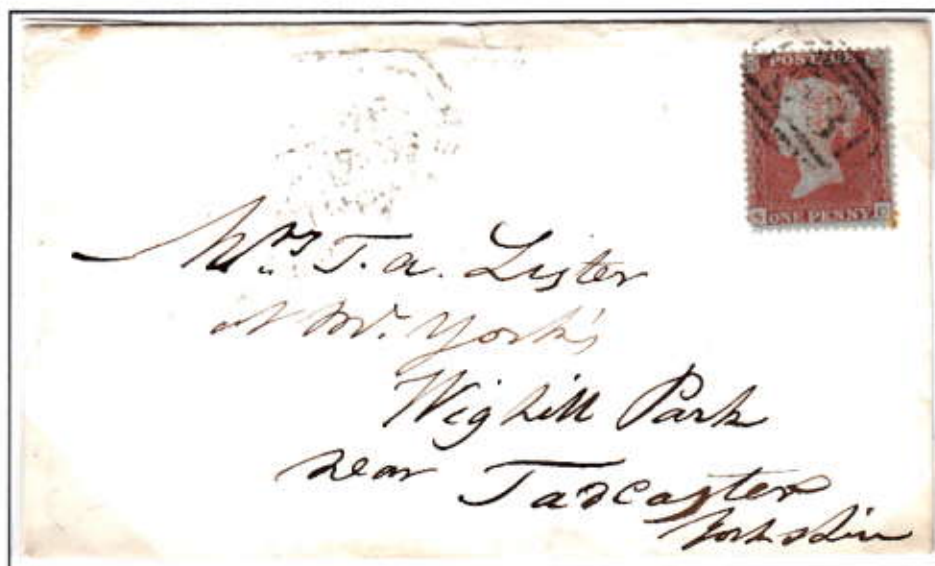 POSTAGE
ONE PENNY
Mrs T. A. Lister
at Mr. York's
Wighill Park
near Tadcaster
Yorkshire